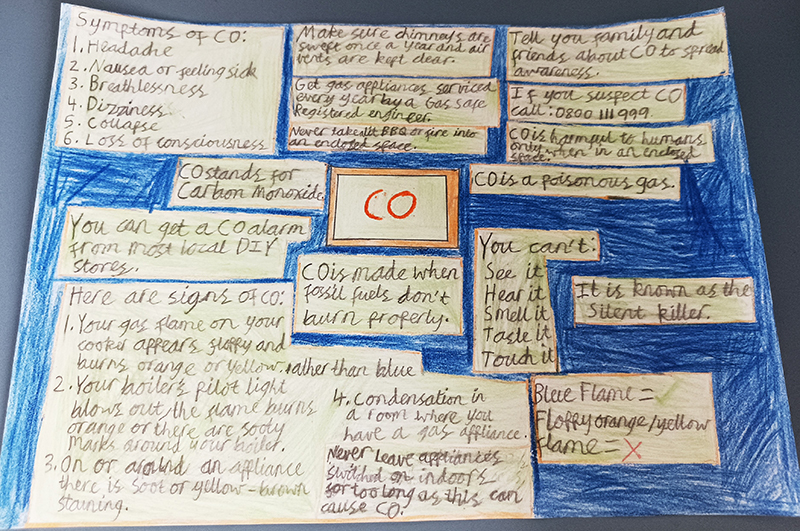 Symptoms of CO:
1. Headache
2. Nausea or feeling sick
3. Breathlessness
4. Dizziness
5. Collapse
6. Loss of consciousness
Make sure chimneys are
swept once a year and air
vents are kept clear.
Get gas appliances serviced
every year by a Gas safe
Registered engineer.
Never take a lit BBQ or fire into
an enclosed space.
Tell you family and
friends about CO to spread
awareness.
If you suspect CO
call: 0800 111 999
CO is harmful to humans
only when in an enclosed
space.
CO stands for
Carbon Monoxide
CO
CO is a poisonous gas.
You can get a CO alarm
from most local DIY
stores.
CO is made when
fossil fuels don't
burn properly.
You can't:
See it
Hear it
Smell it
Taste it
Touch it
It is known as the
Silent killer.
Here are signs of CO:
1. Your gas flame on your
cooker appears floffy and
burns orange or yellow. rather than blue
2. Your boilers pilot light
blows out/the flame burns
orange or there are sooty
marks around your boiler.
3. On or around an appliance
there is soot or yellow-brown
staining.
4. Condensation in
a room where you
have a gas appliance.
Never leave appliances
switched on indoors
for too long as this can
cause CO.
Blue Flame = ✓
Floffy orange/yellow
flame = X